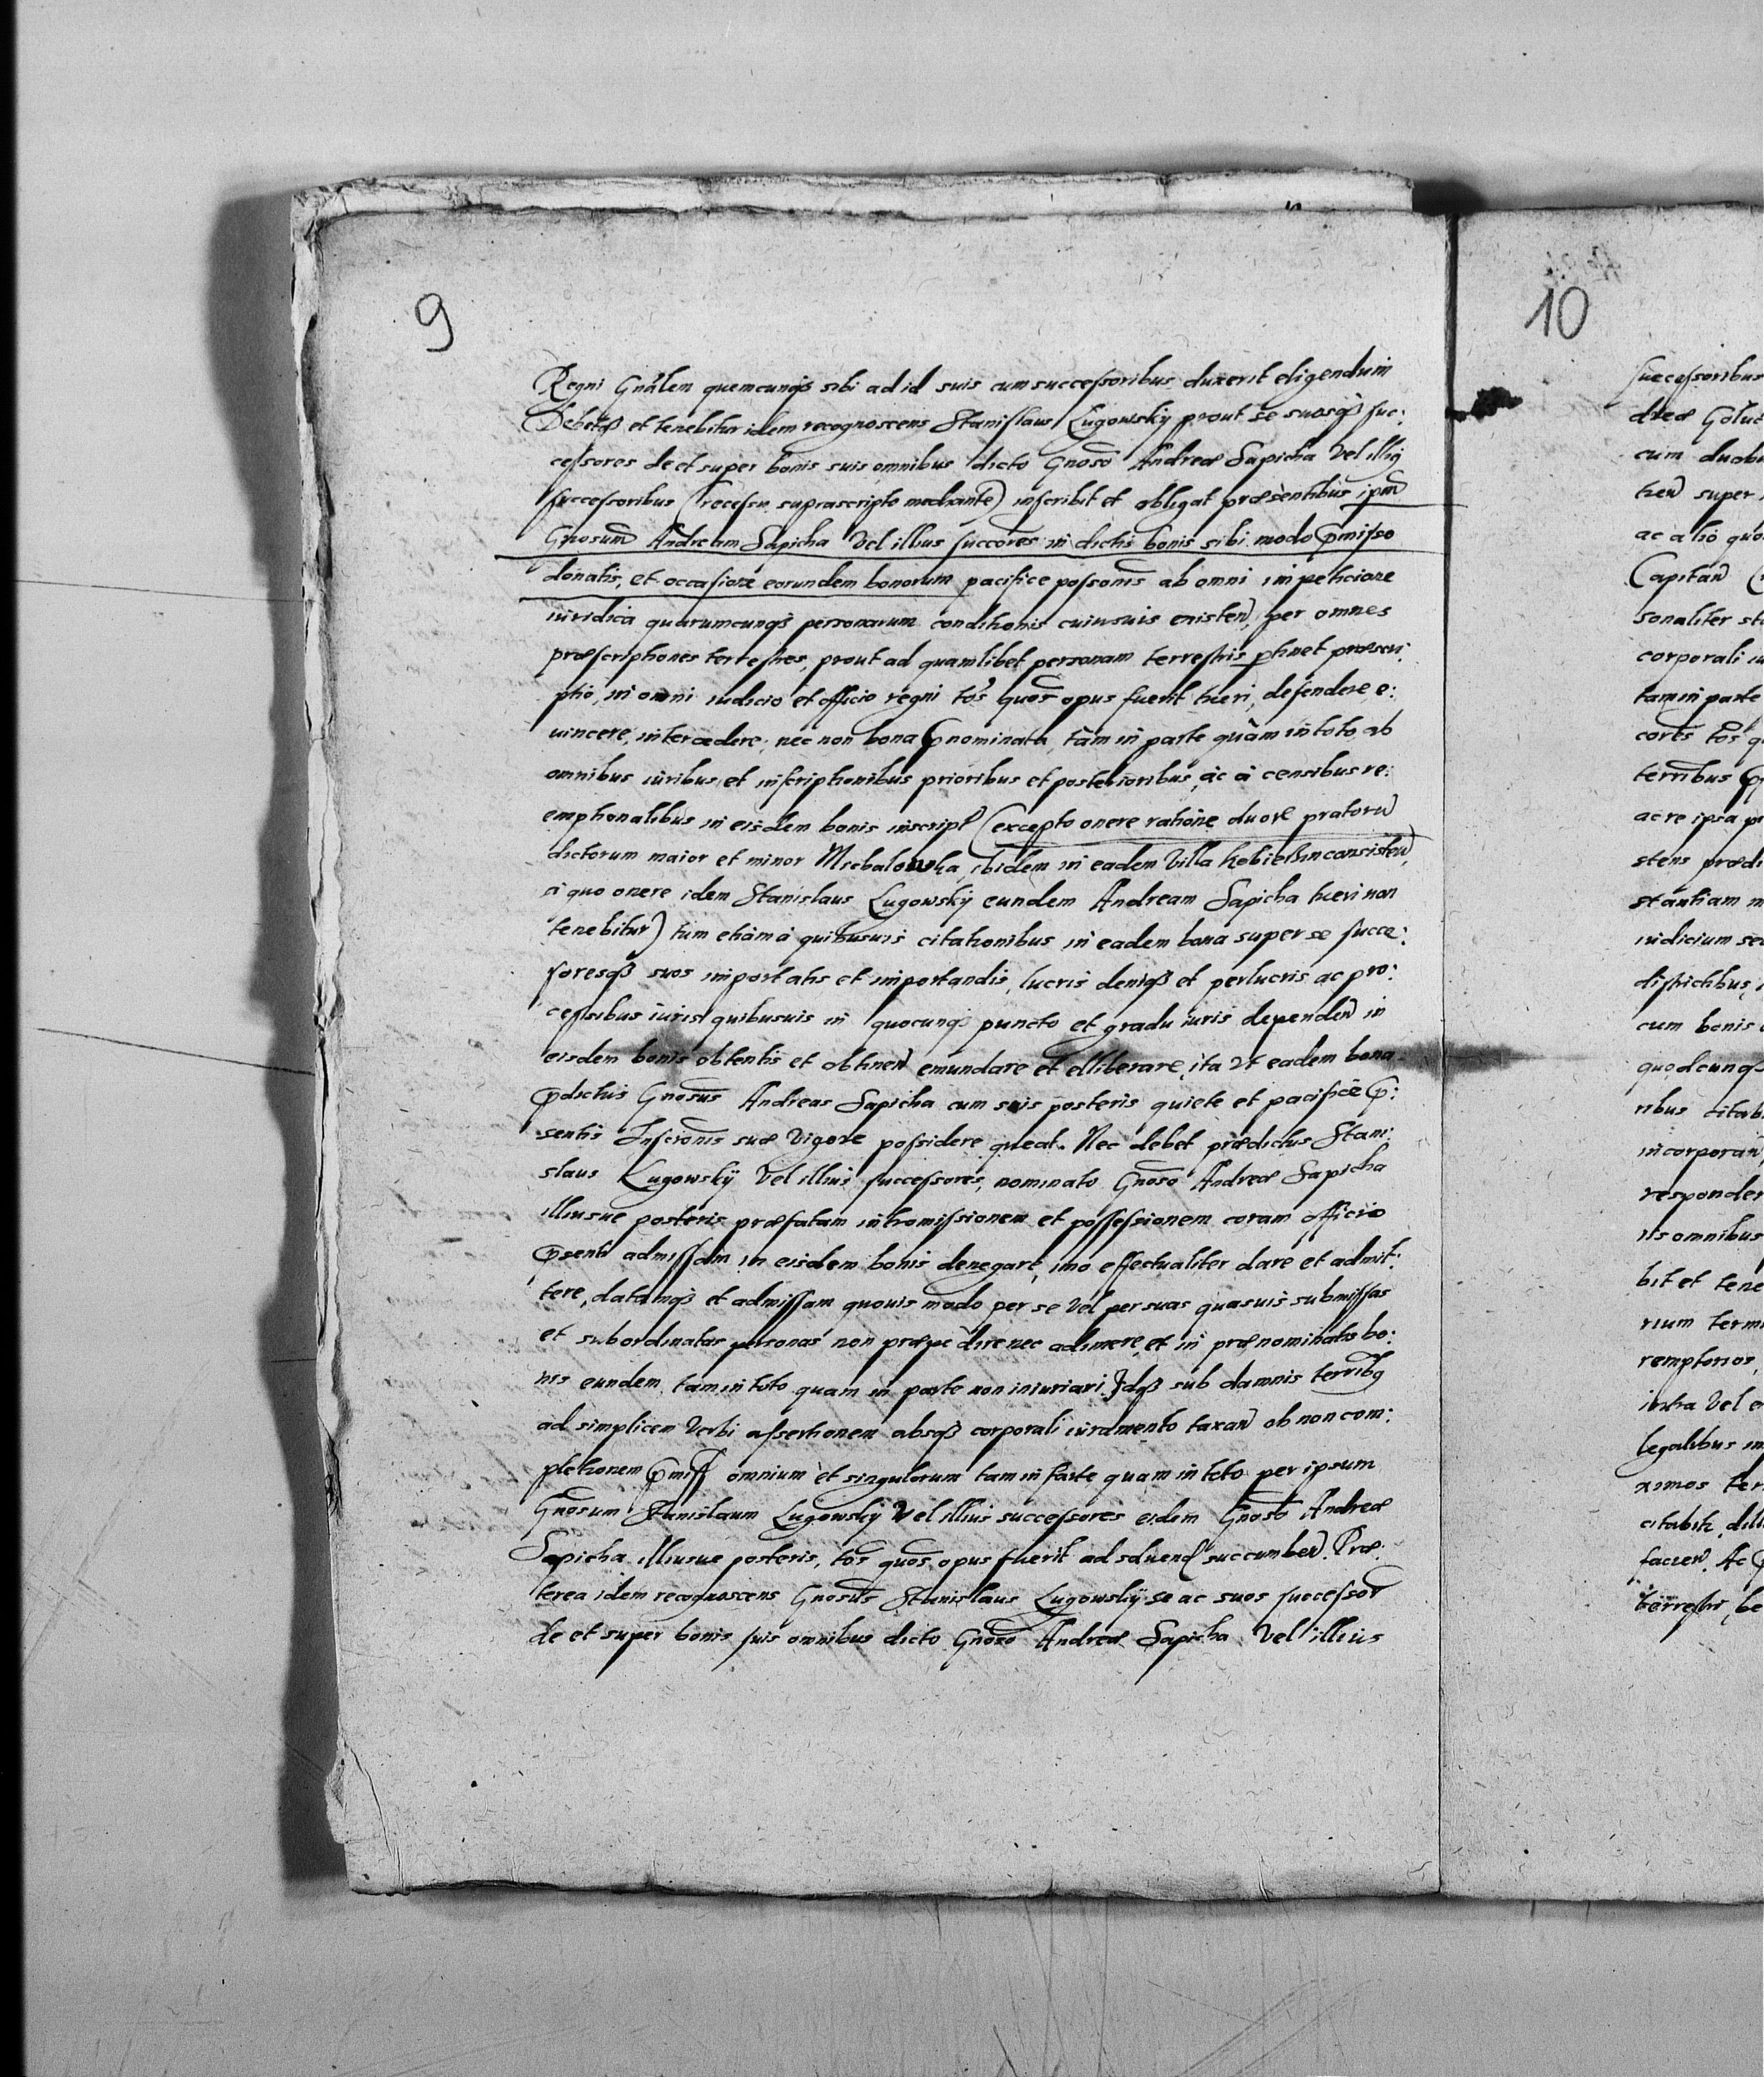 9
Regni Gnãlem quemcunqz sibi ad id suis cum successoribus duxerit eligendum
Debetqz et tenebitur idem recognoscens Stanislaus Lugowskÿ prout se suosqz suc:
cessores de et super bonis suis omnibus dicto Gnoso Andreæ Sapieha Vel illiq
successoribus (recessu suprascripto mediante) inscribit et obligat præsentibus ipm
Gnosum Andream Sapieha Vel illius succores in dictis bonis sibi modo pmisso
donatis, et occasione eorundem bonorum pacifice possonis ab omni impeticione
iuridica quarumcunqz personarum conditionis cuiusuis existen, per omnes
præscriptiones terrestres, prout ad quamlibet personam terrestris ptinet præscri:
ptio, in omni iudicio et officio regni tos quos opus fuerit tueri, defendere e:
uincere, intercedere, nec non bona pnominata, tàm in parte quàm in toto ab
omnibus iuribus et inscriptionibus prioribus et posterioribus, ac à censibus re:
emptionalibus in eisdem bonis inscript (excepto onere ratione duor pratoru
dictorum maior et minor Michalowka, ibidem in eadem Villa Kobielsin consisten,
à quo onere idem Stanislaus Lugowskÿ eundem Andream Sapieha tueri non
tenebitur) tùm etiàm à quibusuis citationibus in eadem bona super se succe:
soresqz suos importatis et importandis, lucris deniqz et perlucris ac pro:
cessibus iuris quibusuis in quocunqz puncto et gradu iuris dependen in
eisdem bonis obtentis et obtinen emundare et elliberare, ita Vt eadem bona
pdictus Gnosus Andreas Sapieha cum suis posteris quiete et pacifice p:
sentis Inscronis suæ Vigore possidere queat. Nec debet prædictus Stani:
slaus Lugowskÿ Vel illius successores, nominato Gnoso Andreæ Sapieha
illiusue posteris præfatam intromissionem et possessionem coram officio
psenti admissam in eisdem bonis denegare, imo effectualiter dare et admit:
tere, datamqz et admissam quouis modo per se Vel per suas quasuis submissas
et subordinatas personas non præpedire nec adimere, et in prænominatis bo:
nis eundem tam in toto quam in parte non iniuriari Idqz sub damnis terribq
ad simplicem Verbi assertionem absqz corporali iuramento taxan ob non com:
pletionem pmiss omnium et singulorum tam in parte quam in toto per ipsum
Gnosum Stanislaum Lugowskÿ Vel illius successores eidem Gnoso Andreæ
Sapieha illiusue posteris, tos quos opus fuerit ad soluend succumben. Præ:
terea idem recognoscens Gnosus Stanislaus Lugowskÿ se ac suos successor
de et super bonis suis omnibus dicto Gnoso Andreæ Sapieha Vel illius
10
successoribus
dreæ
cum
super
ac alio
Capitan
sonaliter
corporali
tam in parte
cores tos
terribus
ac re ipsa
stens
stantiam
iudicium
districtibus
cum bonis
quodcunqz
ribus
incorporan
its omnibus
bit et
rium
remptorios,
iuxta Vel
legalibus
ximos
citabit,
facien. Ac
terrestri,